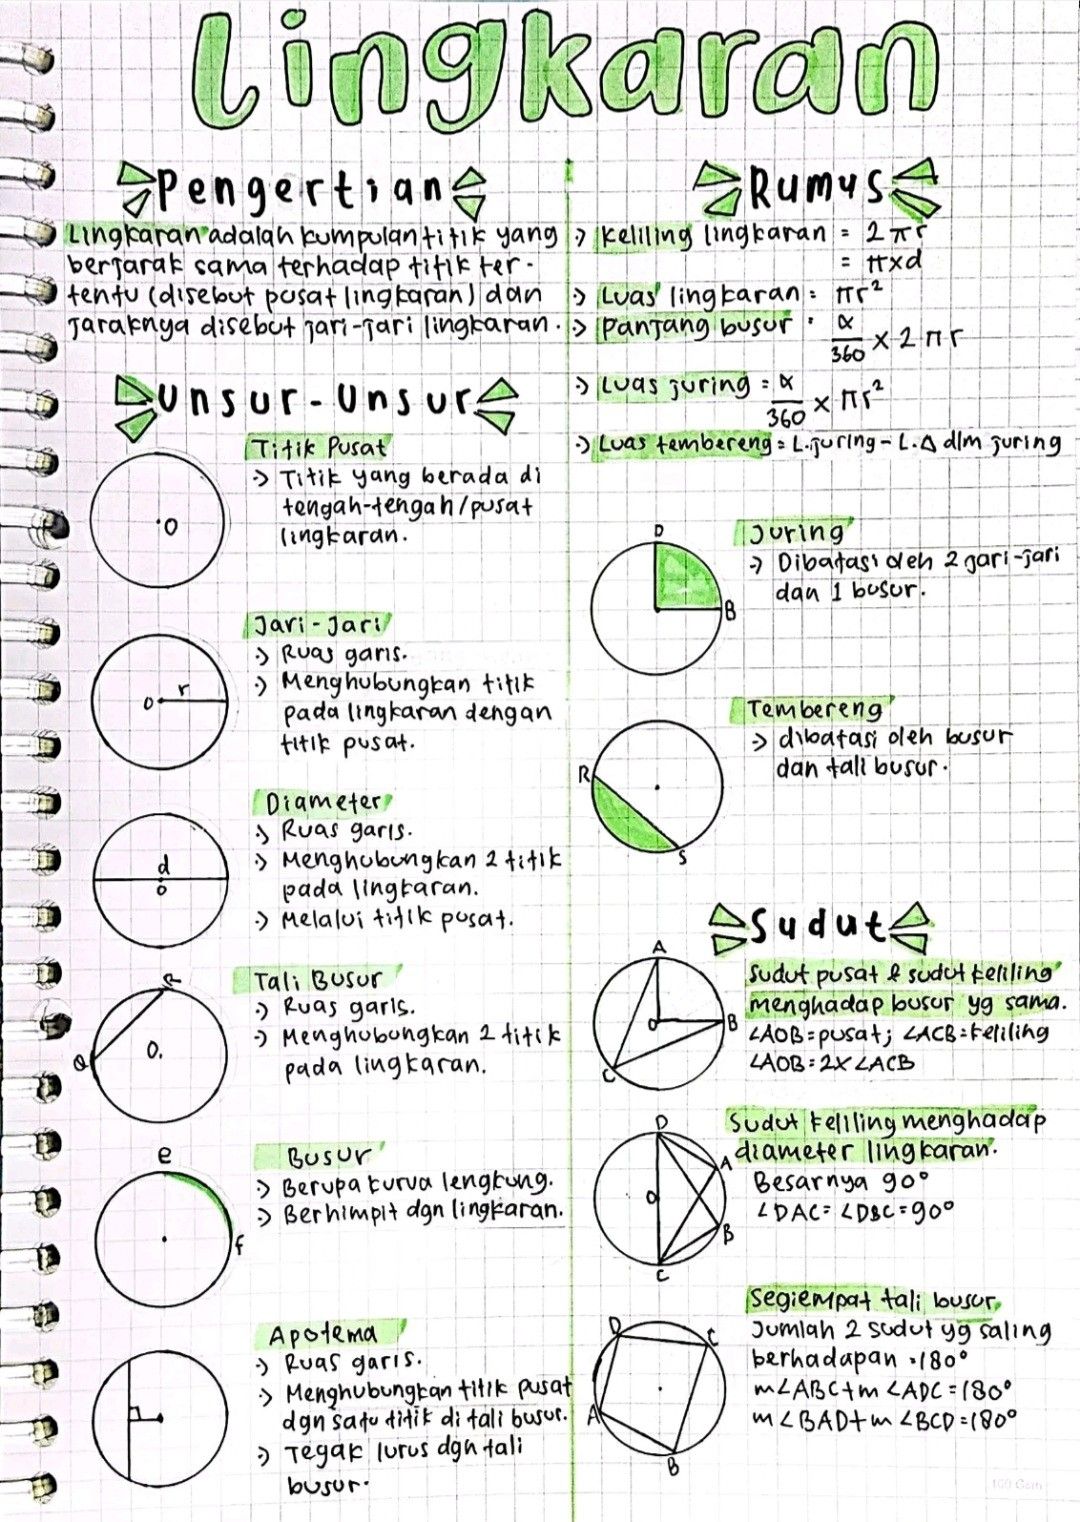 Lingkaran
Pengertian
Lingkaran adalah kumpulan titik yang
berjarak sama terhadap titik ter-
tentu (disebut pusat lingkaran) dan
jaraknya disebut jari-jari lingkaran.
Unsur-Unsur
Titik Pusat
:) Titik yang berada di
tengah-tengah/pusat
lingkaran.
O
Jari-Jari
:) Ruas garis.
:) Menghubungkan titik
pada lingkaran dengan
titik pusat.
O r
Diameter
:) Ruas garis.
:) Menghubungkan 2 titik
pada lingkaran.
:) Melalui titik pusat.
d
O
Tali Busur
:) Ruas garis.
:) Menghubungkan 2 titik
pada lingkaran.
R
Q
O.
Busur
:) Berupa kurva lengkung.
:) Berhimpit dgn lingkaran.
e
f
Apotema
:) Ruas garis.
:) Menghubungkan titik pusat
dgn satu titik di tali busur.
:) Tegak lurus dgn tali
busur.
Rumus
:) Keliling lingkaran = 2 πr
= π×d
:) Luas lingkaran = πr²
:) Panjang busur = α/360 × 2 πr
:) Luas juring = α/360 × πr²
:) Luas tembereng = L.juring - L.Δ dlm juring
Juring
:) Dibatasi oleh 2 jari-jari
dan 1 busur.
D
B
Tembereng
:) dibatasi oleh busur
dan tali busur.
R
S
Sudut
Sudut pusat & sudut keliling
menghadap busur yg sama.
∠AOB = pusat; ∠ACB = keliling
∠AOB = 2x ∠ACB
A
O
B
C
Sudut keliling menghadap
diameter lingkaran.
Besarnya 90°
∠DAC = ∠DBC = 90°
D
A
O
B
C
Segiempat tali busur
Jumlah 2 sudut yg saling
berhadapan = 180°
m∠ABC + m∠ADC = 180°
m∠BAD + m∠BCD = 180°
D
C
A
B